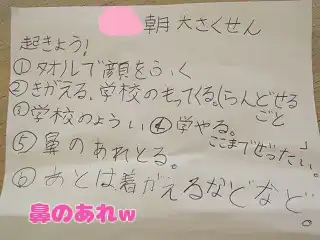 朝 大さくせん
起きよう!
①タオルで顔をふく
②きがえる、学校のもってくる。(らんどせるごと
③学校のようい ④学やる。
ここまでぜったい。」
⑤鼻のあれとる。
⑥あとは着がえるなどなど。
鼻のあれw